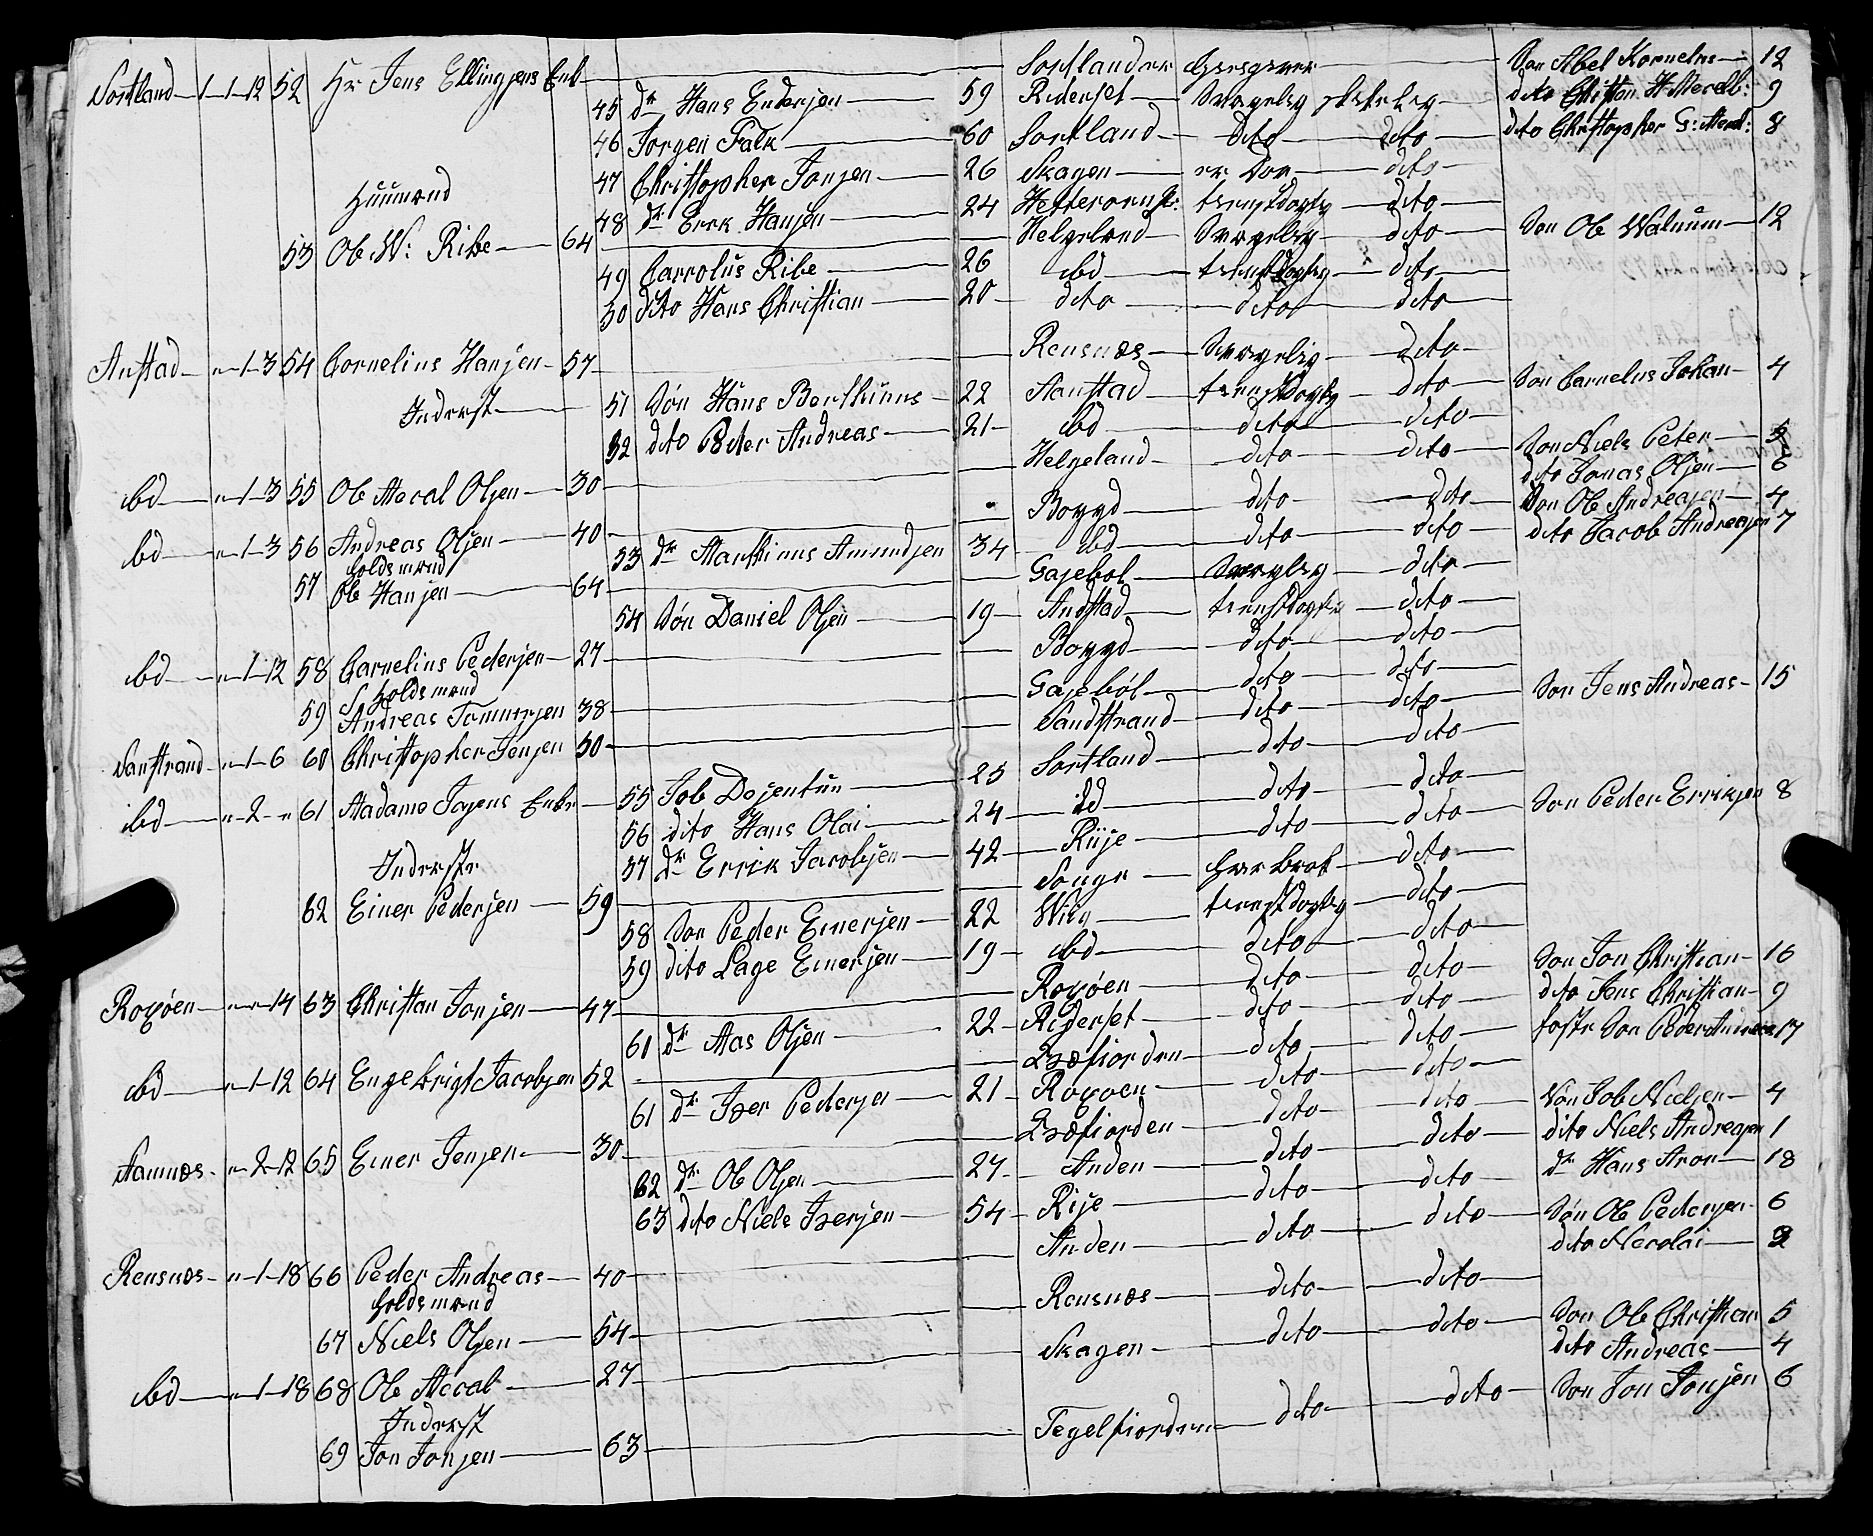 Sortland 1-1-12 52 Hr Jens Ellingsens Enk — Sortland er Søn Abel Kornelius 12
45 dr Hans Endersen 59 Riderset Svagelig dito Christian H 9
46 Jorgen Falk 60 Sortland dito dito dito Christopher G: 8
47 Christopher Jonsen 26 Skagen dito
Huusmænd 48 dr Erek Hansen 24 tienstdogtig dito
53 Ole W: Ribe 64 Helgeland Svagelig dito Søn Ole Walnum 12
49 Carrolus Ribe 26 ibd tienstdogtig dito
50 dito Hans Christian 20 dito dito dito
Anstad 1-3 54 Cornelius Hansen 57 Rensnæs Svagelig dito
Inderst 51 Søn Hans Berthinus 22 Aanstad tienstdogtig dito Søn Cornelius Johan 4
52 dito Peder Andreas 21 ibd dito dito
ibd 1-3 55 Ole Meval Olsen 30 Helgeland dito dito Søn Niels Peter 5
dito Jonas Olsen 6
ibd 1-3 56 Andreas Olsen 40 Boyyd dito dito Søn Ole Andreasen 4
53 dr Marthinus Amundsen 34 ibd dito dito dito Jacob Andreasen 7
holdsmænd
57 Ole Hansen 64 Gasebol Svagelig dito
54 Søn Daniel Olsen 19 Andstad tienstdogtig dito
ibd 1-12 58 Carnelius Pedersen 27 Boyyd dito dito
holdsmænd
59 Andreas Tommesen 38 Gasebol dito dito Søn Jens Andreas 15
Sanstrand 1-6 60 Christopher Jensen 50 Sandstrand dito dito
ibd 2 61 Madame Jogens Enke 55 Job Dojentun 25 Sortland dito dito
56 dito Hans Olai 24 id dito dito
57 dr Errik Jacobsen 42 Riije dito dito Søn Peder Erriksen 8
Inderste
62 Einer Pedersen 59 Songe dito
58 Søn Peder Einersen 22 Wiig tienstdogtig dito
59 dito Lage Einersen 19 ibd dito dito
Roxøen 14 63 Christian Jonsen 47 Roxøen dito dito Søn Jon Christian 16
61 dr Aas Olsen 22 Riderset dito dito dito Jens Christian 9
ibd 1-12 64 Engebrigt Jacobsen 52 dito dito foster Søn Peder 17
61 dr Iver Pedersen 21 Roxøen dito dito
Aamnæs 2-12 65 Einer Jensen 30 dito dito Søn Job Nielsen 4
62 dr Ole Olsen 27 Anden dito dito dito Niels Andreasen 1
63 dito Niels Iversen 54 Rije dito dito dr Hans Aron 18
Rensnæs 1-18 66 Peder Andreas 40 Anden dito dito Søn Ole Pedersen 6
dito Nicolai 2
holdsmænd
67 Niels Olsen 54 Rensnæs dito dito
ibd 1-18 68 Ole Meval 27 Skagen dito dito Søn Ole Christian 5
dito Andreas 4
Inderst
69 Jon Jonsen 63 Tegelfiorden dito dito Søn Jon Jonsen 6